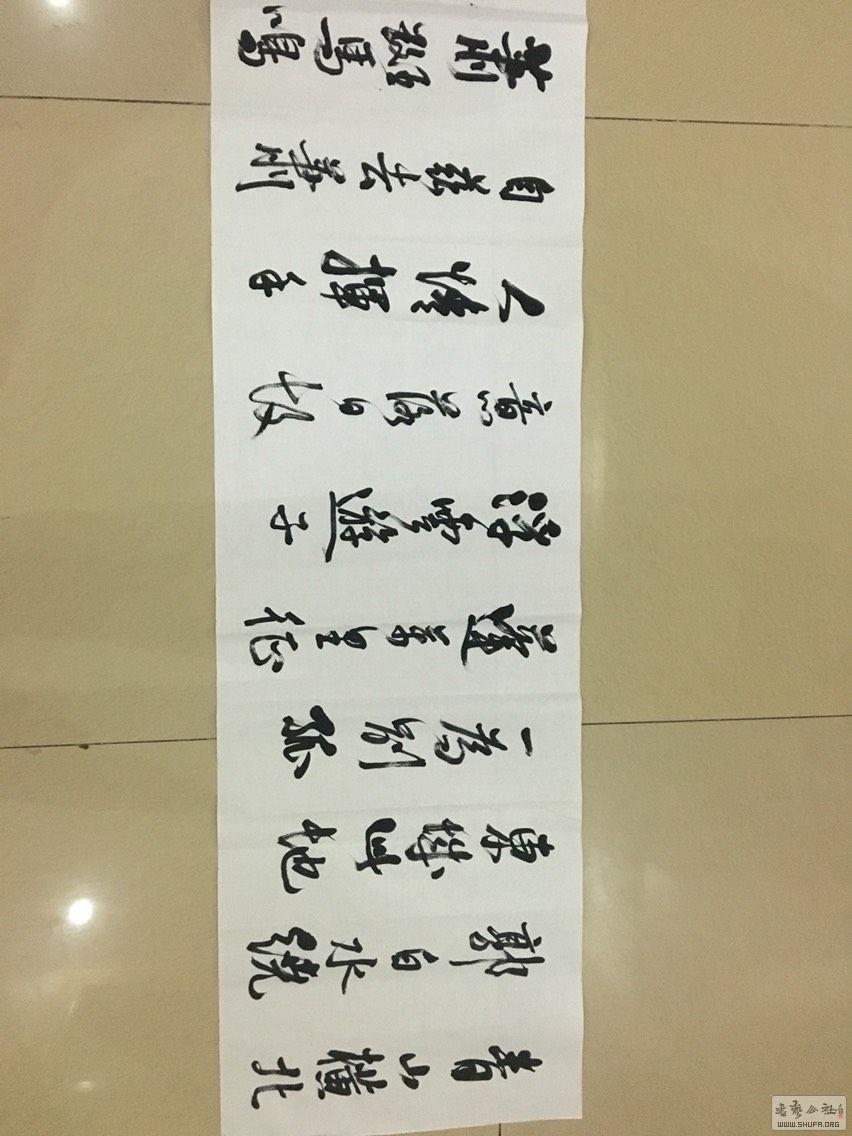 青山橫北
郭白水繞
東城此地
一為別孤
蓬萬里征
浮雲遊子
意落日故
人情揮手
自茲去蕭
蕭班馬鳴
書藝公社
WWW.SHUFA.ORG